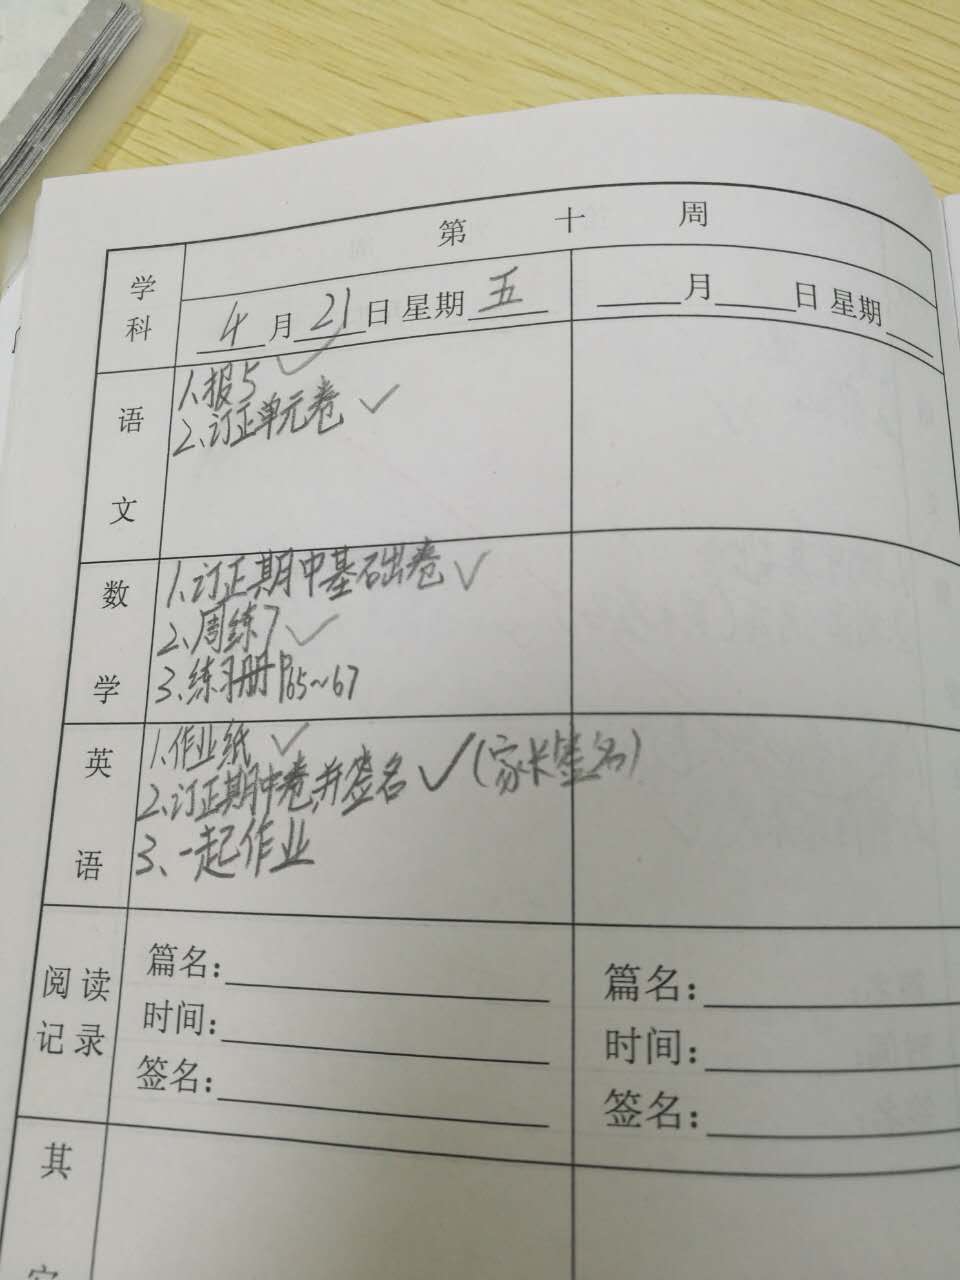 第 十 周
学科
4月21日 星期五
月 日 星期
语文
1、报5 ✓
2、订正单元卷 ✓
数学
1、订正期中基础卷 ✓
2、周练7 ✓
3、练习册P65~67
英语
1、作业纸 ✓
2、订正期中卷,并签名 ✓(家长签名)
3、一起作业
阅读记录
篇名:
时间:
签名:
篇名:
时间:
签名:
其